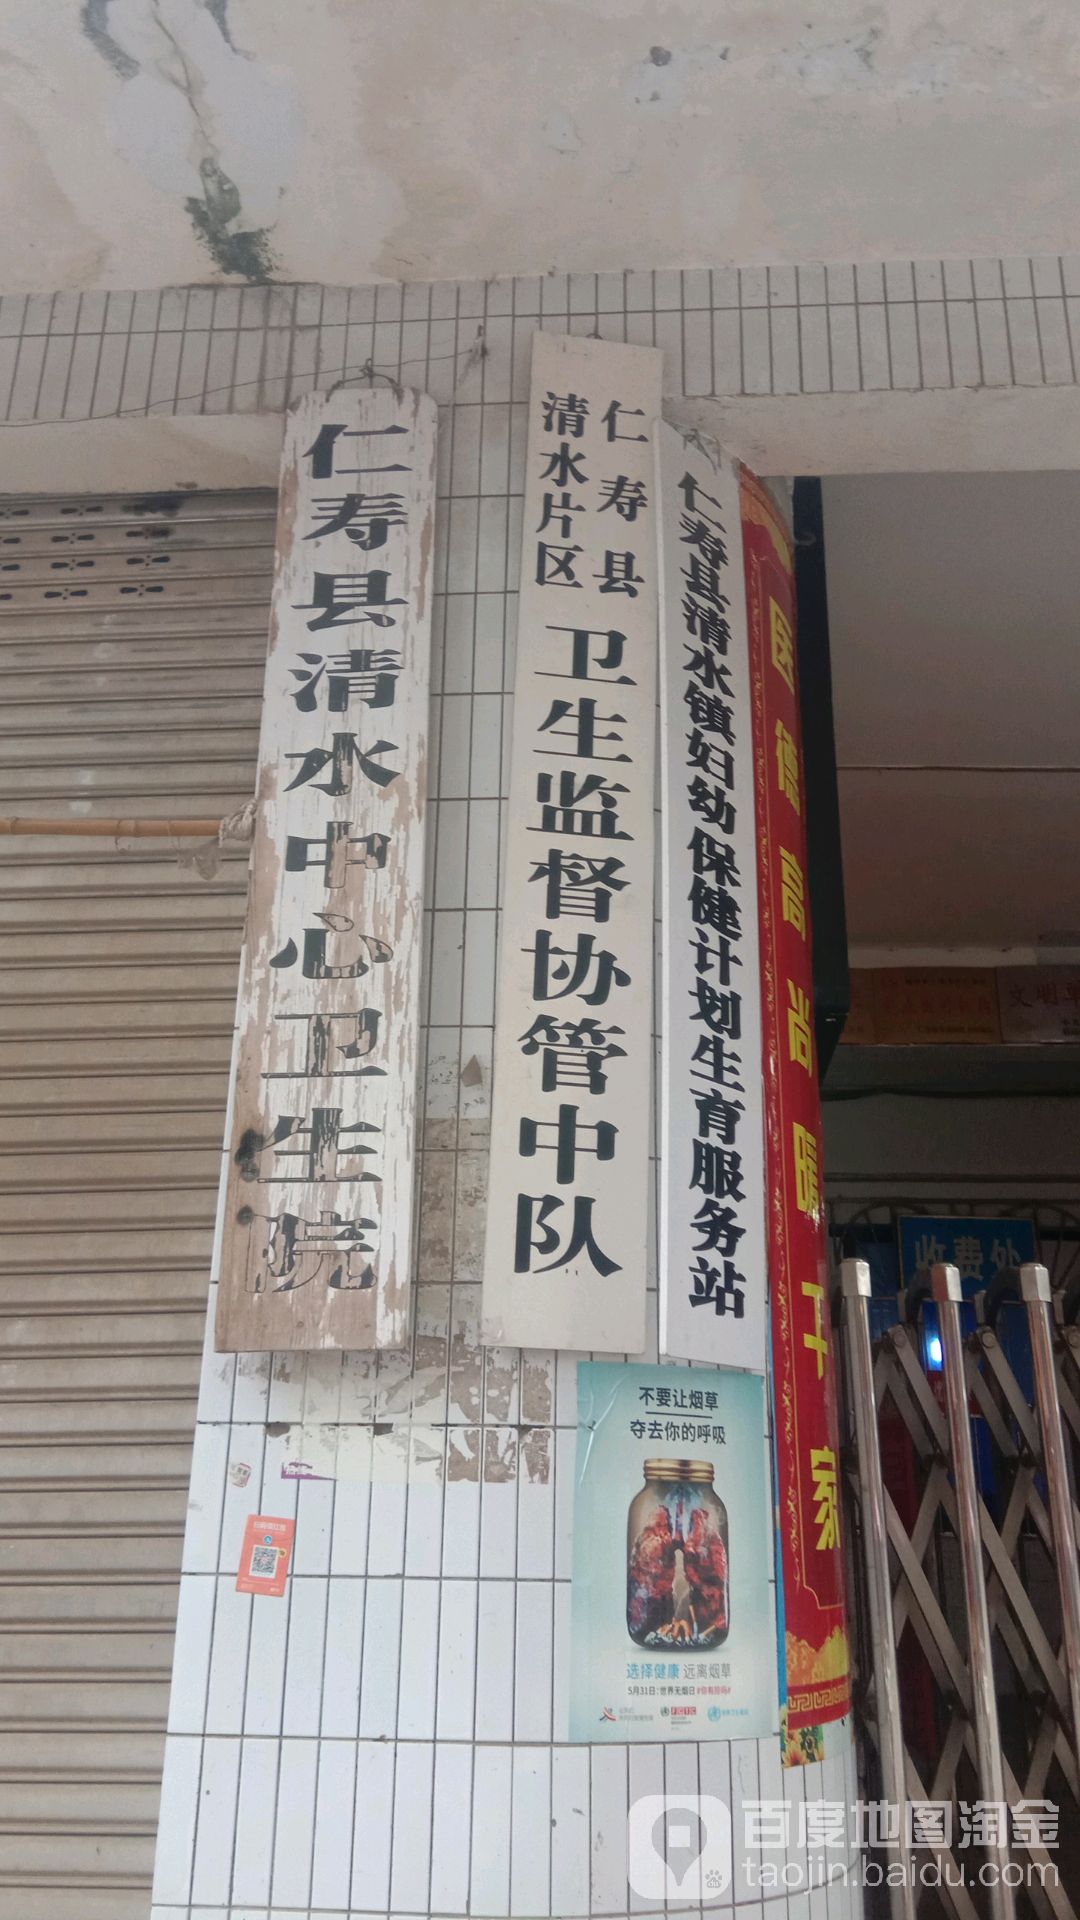 仁寿县清水中心卫生院
仁寿县
清水片区
卫生监督协管中队
仁寿县清水镇妇幼保健计划生育服务站
医德高尚暖千家
收费处
不要让烟草
夺去你的呼吸
选择健康 远离烟草
5月31日:世界无烟日
百度地图淘金
taojin.baidu.com